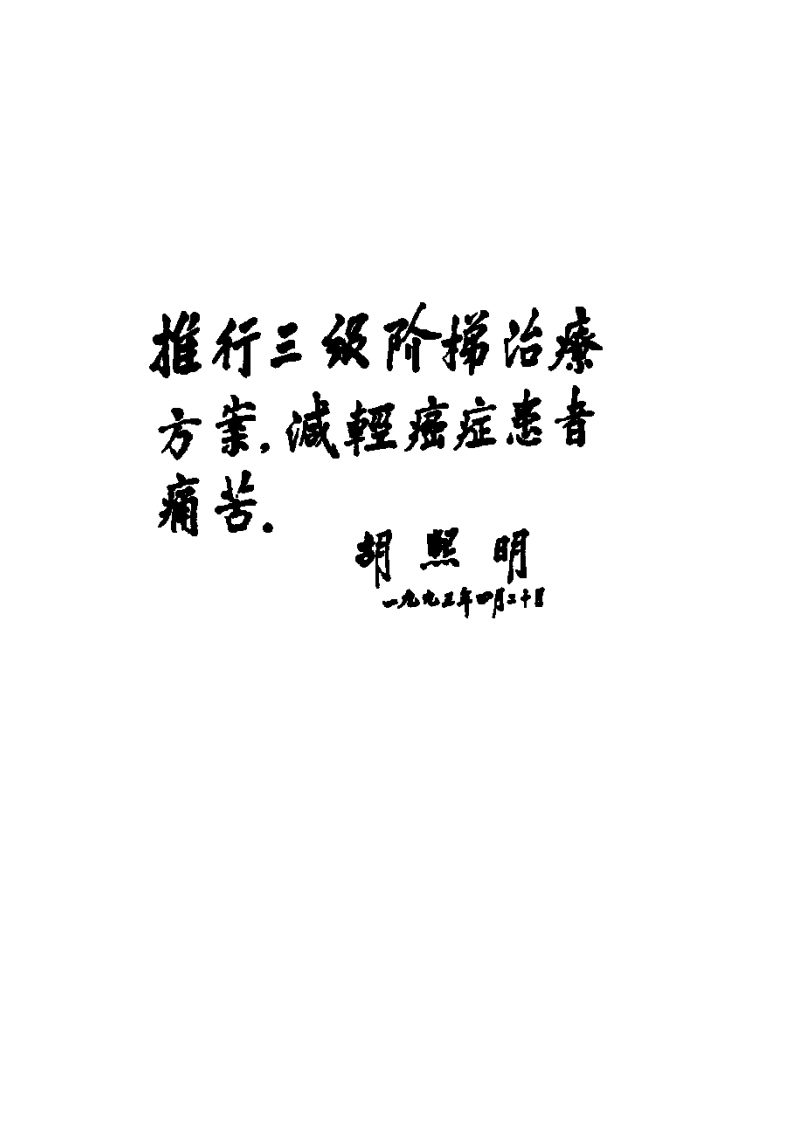 推行三级阶梯治療
方案，減輕癌症患者
痛苦．
胡熙明
一九九三年四月二十日